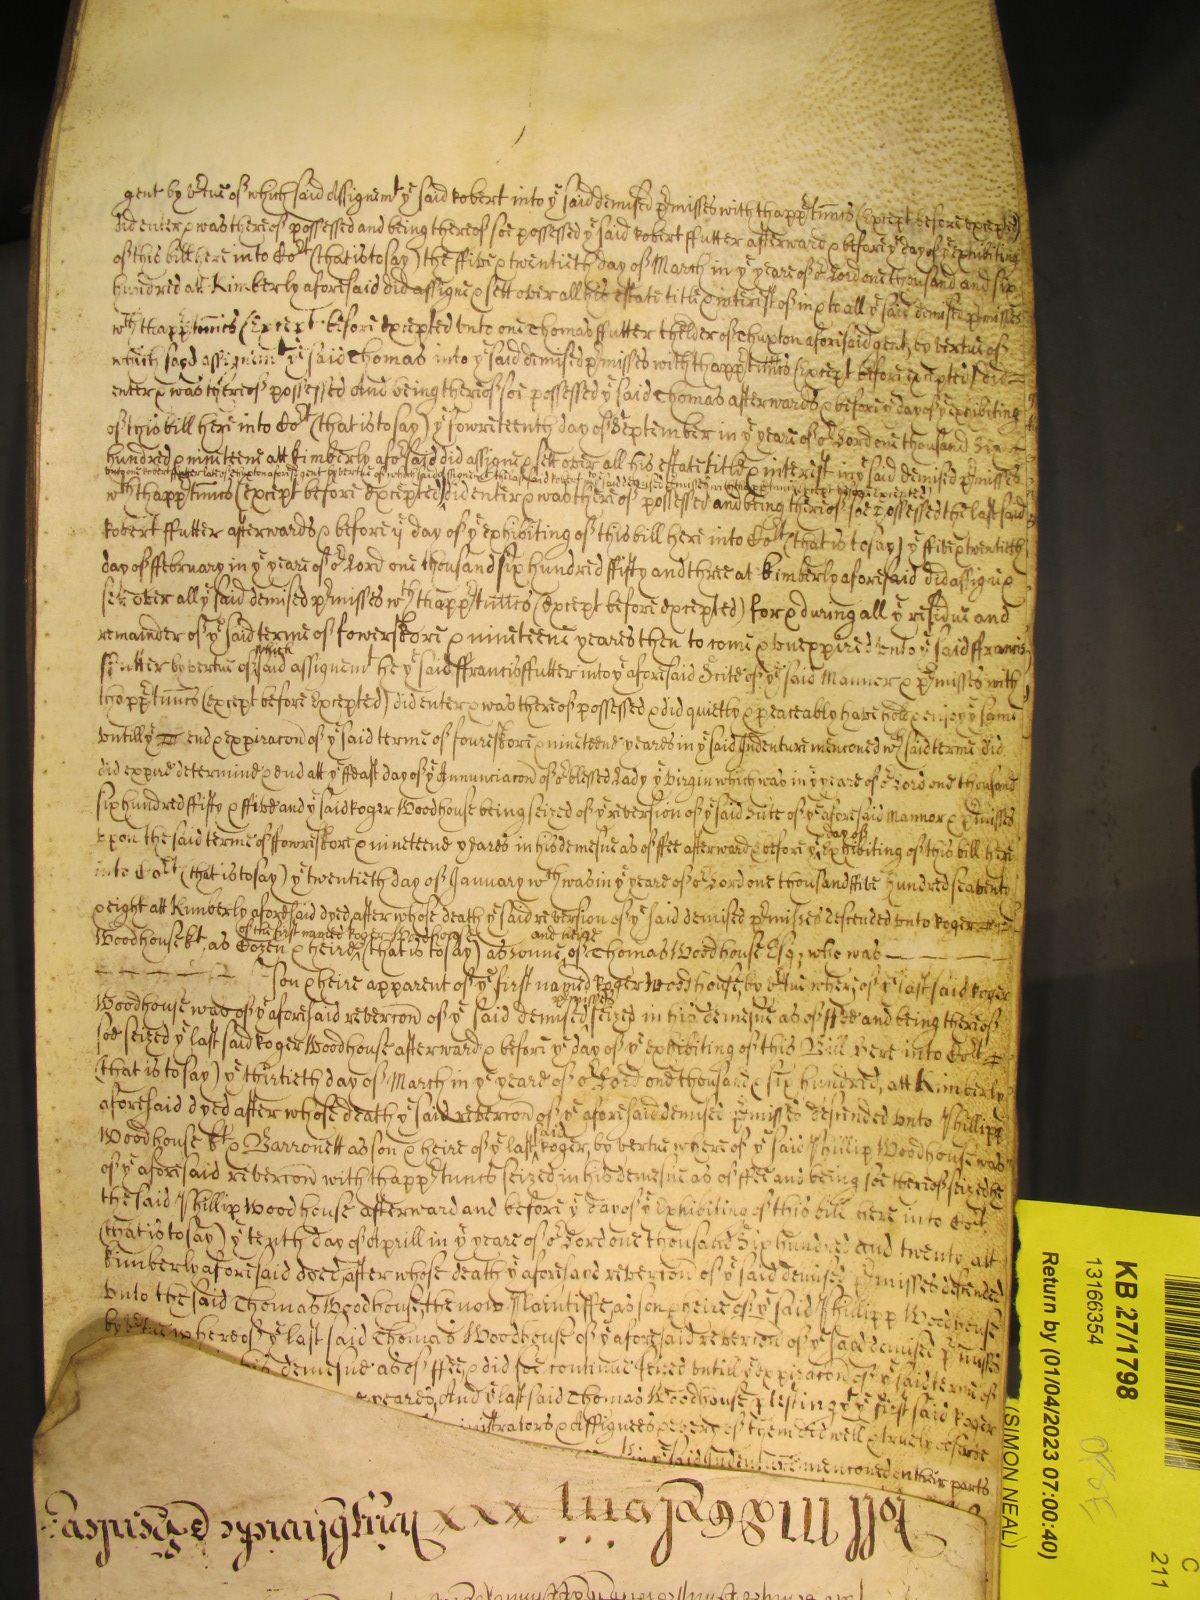 gent by v'tue of which said Assignem^t y^e said Robert into y^e said demised p'misses with thapp'tnncs (Except before excepted)
did enter & was thereof possessed and being thereof soe possessed y^e said Robert ffutter afterward & before y^e day of y^e exhibiting
of this bill here into Co^rt (that is to say) the ffive & twentieth day of March in y^e yeare of o^r Lord one thousand and six
hundred att Kimberly aforesaid did assigne & sett over all his estate title & interest of in & to all y^e said demised p'misses
w^th thapp'tnncs (Except before excepted) unto one Thomas ffutter thelder of Thuxton aforesaid gent, by vertue of
which said assignem^t y^e said Thomas into y^e said demised p'misses with thapp'tnncs (Except before excepted) did
enter & was thereof possessed And being thereof soe possessed y^e said Thomas afterwards & before y^e day of y^e exhibiting
of this bill here into Co^rt (that is to say) y^e fowreteenth day of September in y^e yeare of o^r Lord one thousand Six
hundred & nineteene att Kimberly aforesaid did assigne & sett over all his estate title & interest in y^e said demised p'misses
unto one Robert ffutter late of Thuxton aforesaid gent by vertue of which said assignem^t the last said Robert into y^e said demised p'misses with thapp'tnncs (except before excepted)
w^th thapp'tnncs (except before excepted) did enter & was thereof possessed and being thereof soe possessed the last said
Robert ffutter afterwards & before y^e day of y^e exhibiting of this bill here into Co^rt (that is to say) y^e ffive & twentieth
day of ffebruary in y^e yeare of o^r Lord one thousand six hundred fifty and three at Kimberly aforesaid did assigne &
sett over all y^e said demised p'misses w^th thapp'tnncs (except before excepted) for & during all y^e residue and
remainder of y^e said terme of fowerskore & nineteene yeares then to come & unexpired unto y^e said ffrancis
ffutter by vertue of which said assignem^t he y^e said ffrancis ffutter into y^e aforesaid Scite of y^e said Mannor & p'misses with
thapp'tnncs (except before Excepted) did enter & was thereof possessed & did quietly & peaceably have hold & enjoy y^e same
untill y^e end & expiracon of y^e said terme of foureskore & nineteene yeares in y^e said Indenture menconed w^ch said terme did
did expire determine & end att y^e ffeast day of y^e Annunciacon of o^r blessed Lady y^e Virgin which was in y^e yeare of o^r Lord one thousand
six hundred fifty & ffive and y^e said Roger Woodhouse being seized of y^e reversion of y^e said Scite of y^e aforesaid Mannor & p'misses
upon the said terme of ffowreskore & nineteene yeares in his demesne as of ffee afterward & before y^e day of exhibiting of this bill here
into Co^rt (that is to say) y^e twentieth day of January w^ch was in y^e yeare of o^r Lord one thousand ffive hundred seaventy
& eight att Kimberly aforesaid dyed after whose death y^e said reversion of y^e said demised p'misses descended unto Roger
Woodhouse k^t, as Cozen & heire of the first named Roger Woodhouse (that is to say) as sonne and heire of Thomas Woodhouse Esq, who was
son & heire apparent of y^e first named Roger Woodhouse, by v'tue whereof y^e last said Roger
Woodhouse was of y^e aforesaid revercon of y^e said demised p'misses seized in his demesne as of ffee and being thereof
soe seized y^e last said Roger Woodhouse afterward & before y^e day of y^e exhibiting of this Bill here into Co^rt
(that is to say) y^e thirtieth day of March in y^e yeare of o^r Lord one thousand & six hundred, att Kimberly
aforesaid dyed after whose death y^e said revercon of y^e aforesaid demised p'misses descended unto Phillipp
Woodhouse k^t & Barronett as son & heire of y^e last said Roger, by vertue whereof y^e said Phillip Woodhouse was
of y^e aforesaid revercon with thapp'tnncs seized in his demesne as of ffee and being soe thereof seized he
the said Phillip Woodhouse afterward and before y^e day of y^e Exhibiting of this bill here into Co^rt
(that is to say) y^e tenth day of Aprill in y^e yeare of o^r Lord one thousand Six hundred and twenty att
Kimberly aforesaid dyed, after whose death y^e aforesaid revercon of y^e said demised p'misses descended
unto the said Thomas Woodhouse the now Plaintiffe as son & heire of y^e said Phillipp Woodhouse
by v'tue whereof y^e last said Thomas Woodhouse of y^e aforesaid revercon of y^e said demised p'misses
his demesne as of ffee & did soe continue seized untill y^e expiracon of y^e said terme of
yeares, And y^e last said Thomas Woodhouse p'testing y^t y^e first said Roger
istrators & assignees & every of them did well & truely observe
in y^e said Indenture menconed on their parts
KB 27/1798
13166354
Return by (01/04/2023 07:00:40)
(SIMON NEAL)
C
211